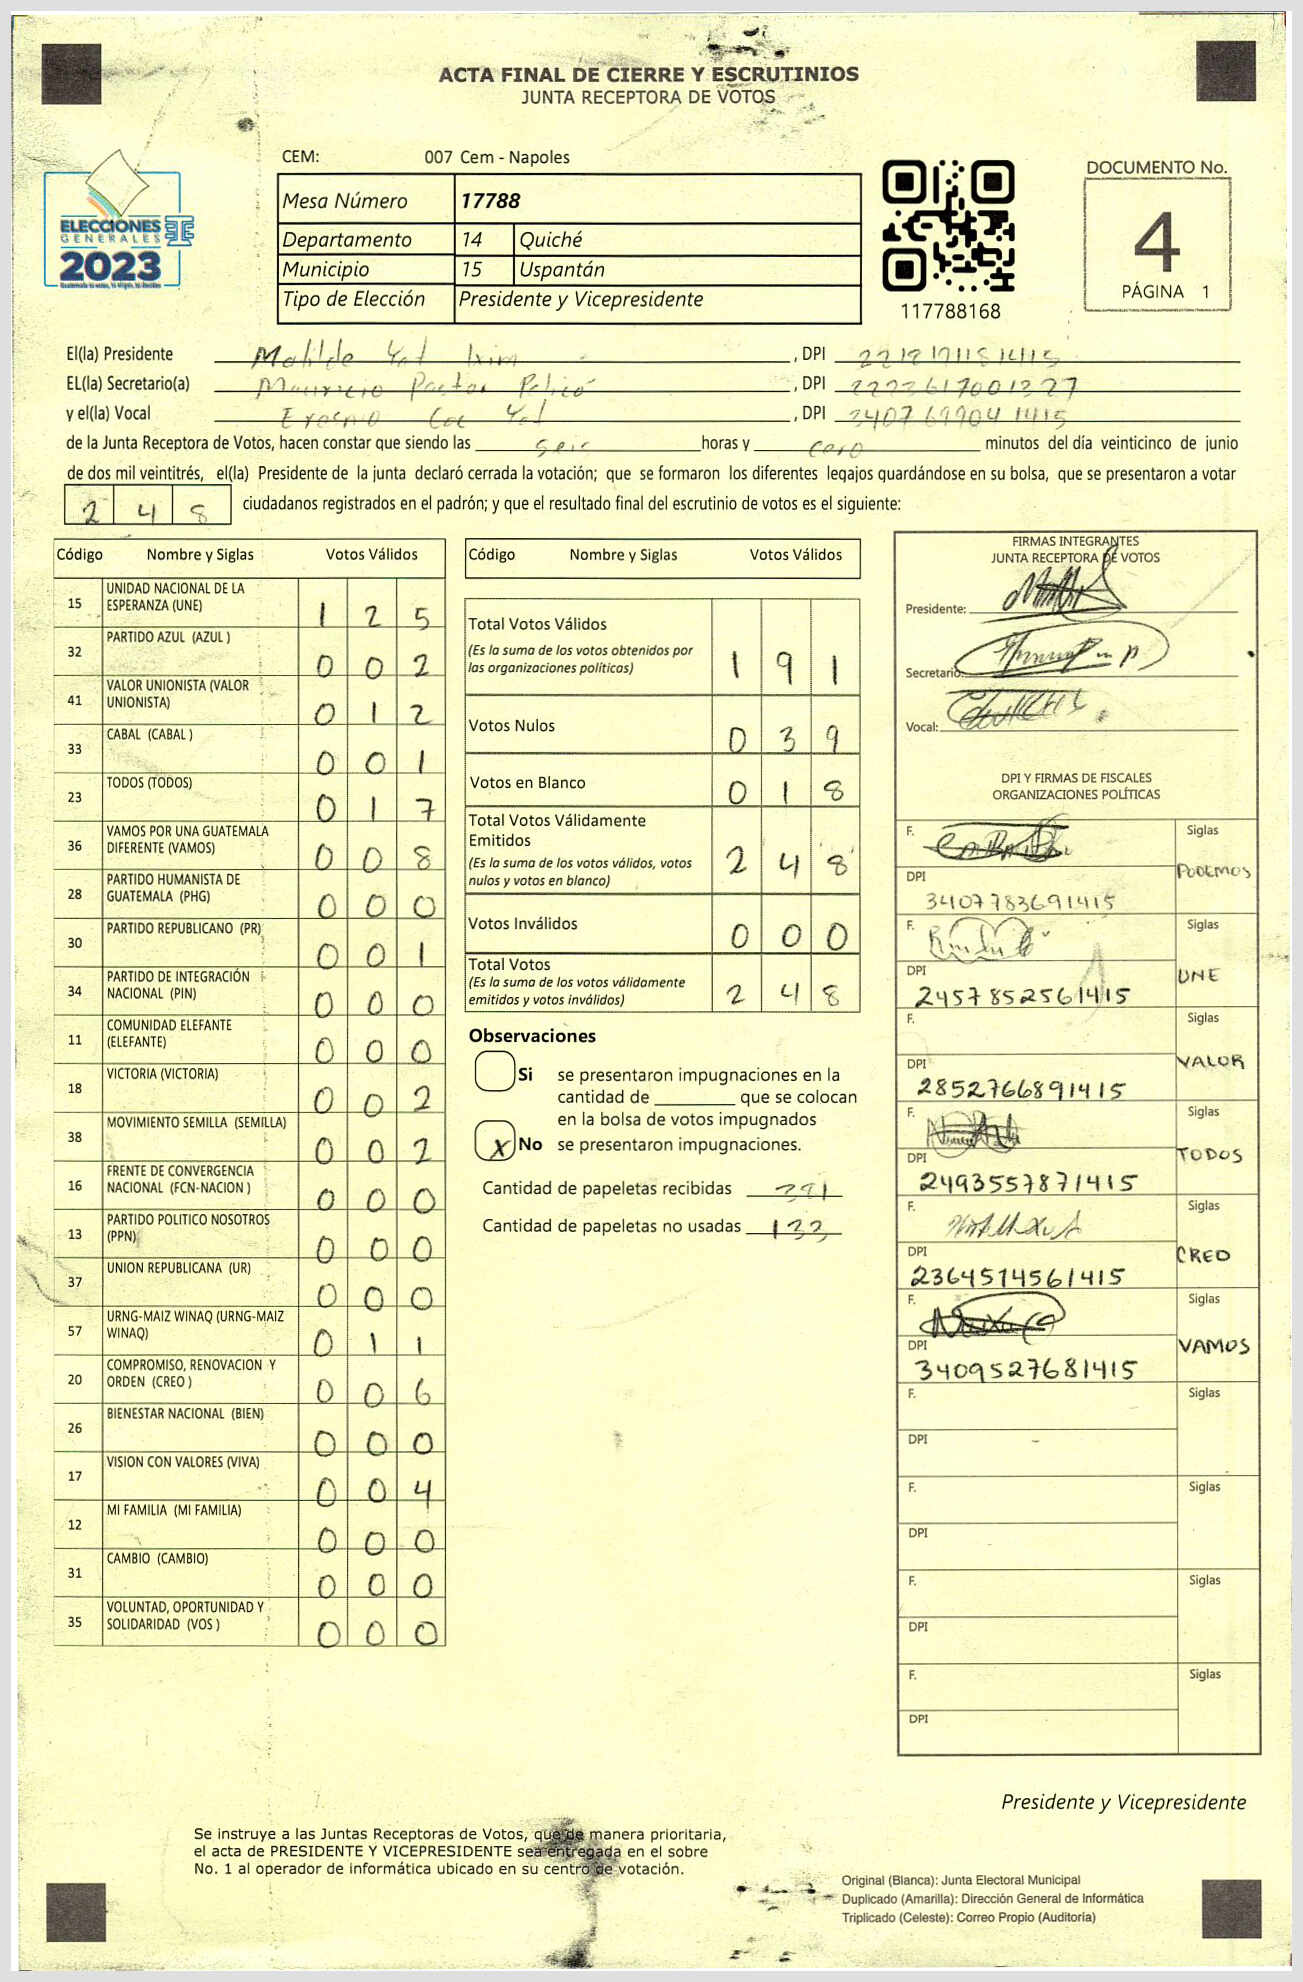 ACTA FINAL DE CIERRE Y ESCRUTINIOS
JUNTA RECEPTORA DE VOTOS
CEM: 007 Cem - Napoles
ELECCIONES
GENERALES
2023
Mesa Número 17788
Departamento 14 Quiché
Municipio 15 Uspantán
Tipo de Elección Presidente y Vicepresidente
117788168
DOCUMENTO No.
4
PÁGINA 1
El(la) Presidente Matilde Yat Ixim, DPI
EL(la) Secretario(a) Mauricio Pastor, DPI
y el(la) Vocal Erasmo Coc Yat, DPI
de la Junta Receptora de Votos, hacen constar que siendo las seis horas y cero minutos del día veinticinco de junio
de dos mil veintitrés, el(la) Presidente de la junta declaró cerrada la votación; que se formaron los diferentes legajos guardándose en su bolsa, que se presentaron a votar
2 4 8 ciudadanos registrados en el padrón; y que el resultado final del escrutinio de votos es el siguiente:
Código Nombre y Siglas Votos Válidos
15 UNIDAD NACIONAL DE LA
ESPERANZA (UNE) 1 2 5
32 PARTIDO AZUL (AZUL ) 0 0 2
41 VALOR UNIONISTA (VALOR
UNIONISTA) 0 1 2
33 CABAL (CABAL ) 0 0 1
23 TODOS (TODOS) 0 1 7
36 VAMOS POR UNA GUATEMALA
DIFERENTE (VAMOS) 0 0 8
28 PARTIDO HUMANISTA DE
GUATEMALA (PHG) 0 0 0
30 PARTIDO REPUBLICANO (PR) 0 0 1
34 PARTIDO DE INTEGRACIÓN
NACIONAL (PIN) 0 0 0
11 COMUNIDAD ELEFANTE
(ELEFANTE) 0 0 0
18 VICTORIA (VICTORIA) 0 0 2
38 MOVIMIENTO SEMILLA (SEMILLA) 0 0 2
16 FRENTE DE CONVERGENCIA
NACIONAL (FCN-NACION ) 0 0 0
13 PARTIDO POLITICO NOSOTROS
(PPN) 0 0 0
37 UNION REPUBLICANA (UR) 0 0 0
57 URNG-MAIZ WINAQ (URNG-MAIZ
WINAQ) 0 1 1
20 COMPROMISO, RENOVACION Y
ORDEN (CREO ) 0 0 6
26 BIENESTAR NACIONAL (BIEN) 0 0 0
17 VISION CON VALORES (VIVA) 0 0 4
12 MI FAMILIA (MI FAMILIA) 0 0 0
31 CAMBIO (CAMBIO) 0 0 0
35 VOLUNTAD, OPORTUNIDAD Y
SOLIDARIDAD (VOS ) 0 0 0
Código Nombre y Siglas Votos Válidos
Total Votos Válidos
(Es la suma de los votos obtenidos por
las organizaciones políticas) 1 9 1
Votos Nulos 0 3 9
Votos en Blanco 0 1 8
Total Votos Válidamente
Emitidos
(Es la suma de los votos válidos, votos
nulos y votos en blanco) 2 4 8
Votos Inválidos 0 0 0
Total Votos
(Es la suma de los votos válidamente
emitidos y votos inválidos) 2 4 8
Observaciones
Si se presentaron impugnaciones en la
cantidad de ________ que se colocan
en la bolsa de votos impugnados
X No se presentaron impugnaciones.
Cantidad de papeletas recibidas
Cantidad de papeletas no usadas 133
FIRMAS INTEGRANTES
JUNTA RECEPTORA DE VOTOS
Presidente:
Secretario:
Vocal:
DPI Y FIRMAS DE FISCALES
ORGANIZACIONES POLÍTICAS
F. Siglas
PODEMOS
DPI
3407783691415
F. Siglas
UNE
DPI
2457852561415
F. Siglas
VALOR
DPI
2852766891415
F. Siglas
TODOS
DPI
2493557871415
F. Siglas
CREO
DPI
2364514561415
F. Siglas
VAMOS
DPI
3409527681415
F. Siglas
DPI
F. Siglas
DPI
F. Siglas
DPI
F. Siglas
DPI
Presidente y Vicepresidente
Se instruye a las Juntas Receptoras de Votos, que de manera prioritaria,
el acta de PRESIDENTE Y VICEPRESIDENTE sea entregada en el sobre
No. 1 al operador de informática ubicado en su centro de votación.
Original (Blanca): Junta Electoral Municipal
Duplicado (Amarilla): Dirección General de Informática
Triplicado (Celeste): Correo Propio (Auditoría)